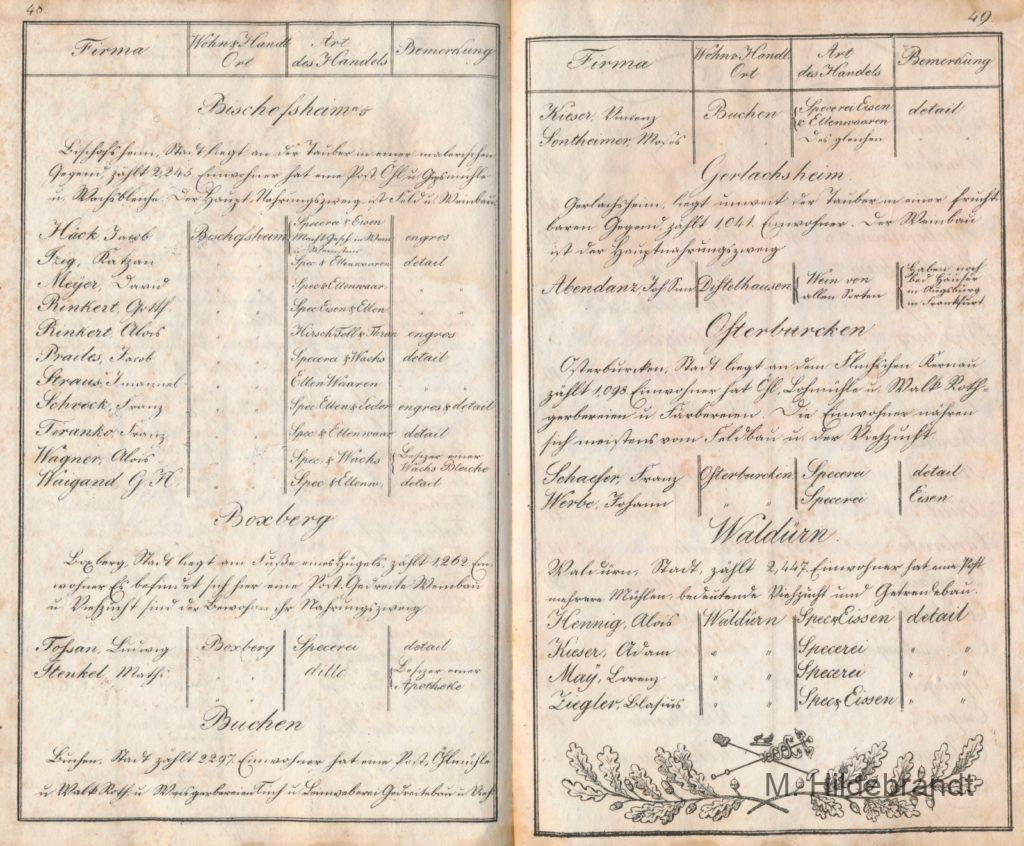 48.
Firma Wohn & Handl Ort Art des Handels Bemerkung
Bischofsheim
Bischofsheim, Stadt liegt an der Tauber in einer malerischen
Gegend, zählt 2,245. Einwohner hat eine Post Öhl u. Gypsmühle
u. Wachsbleiche. Der Haupt-Nahrungszweig ist Feld u Weinbau.
Häck Jacob Bischofsheim Specerei & Eisen engros
Itzig, Katzan " Spec & Ellenwaaren detail
Meÿer, David " Spec & Ellenwaar " "
Rinkert, Gottf " Spec Eisen & Ellen " "
Rinkert, Alois " Hirsch Fell & Thran engros
Prailes, Jacob " Specerei & Wachs detail
Straus, Imanuel " Ellen Waaren " "
Schreck, Franz " Spec Ellen & Leder engros & detail
Franko, Franz " Spec & Ellenwaar detail
Wagner, Alois " Spec. & Wachs Besitzer einer Wachs Bleiche
Waigand G. H " Spec & Ellenw. detail
Boxberg
Boxberg, Stadt liegt am Fuße eines Hügels, zählt 1262 Ein-
wohner Es befindet sich hier eine Post. Getreide Weinbau
u. Viehzucht sind der Bewohner ihr Nahrungszweig
Ludwig Boxberg Specerei detail
Henkel, Math: " ditto Besizer einer Apotheke
Buchen
Buchen, Stadt zählt 2297. Einwohner hat eine Post, Öhlmühle
u. Walk Roth u Weisgerbereien Tuch u Leinweberei Getreidebau u Vieh
49.
Firma Wohn & Handl. Ort Art des Handels Bemerkung
Kieser, Buchen Specerei Eisen & Ellenwaaren detail
Sontheimer, Moses " Des gleichen
Gerlachsheim.
Gerlachsheim, liegt unweit der Tauber in einer frucht-
baren Gegend, zählt 1,041. Einwohner. Der Weinbau
ist der Hauptnahrungszweig
Abendanz, Joh Sim Distelhausen Wein von allen Sorten Haben noch bei Häuser in Augsburg in Frankfurt
Osterburcken
Osterburcken, Stadt liegt an dem Flüsschen Kernau
zählt 1,098. Einwohner hat Öhl, Lohmühle u. Walk Roth-
gerbereien u Färbereien. Die Einwohner nähren
sich meistens vom Feldbau u der Viehzucht
Schaefer, Franz Osterburcken Specerei detail
Werbe, Johann " " Specerei Eisen
Waldürn.
Waldürn, Stadt, zählt 2,447. Einwohner hat eine Post
mehrere Mühlen, bedeutende Viehzucht und Getreidebau.
Hennig, Alois Waldürn Spec & Eissen detail
Kieser, Adam " " Specerei " "
Maÿ, Lorenz " " Specerei " "
Ziegler, Blasius " " Spec & Eissen " "
M. Hildebrandt